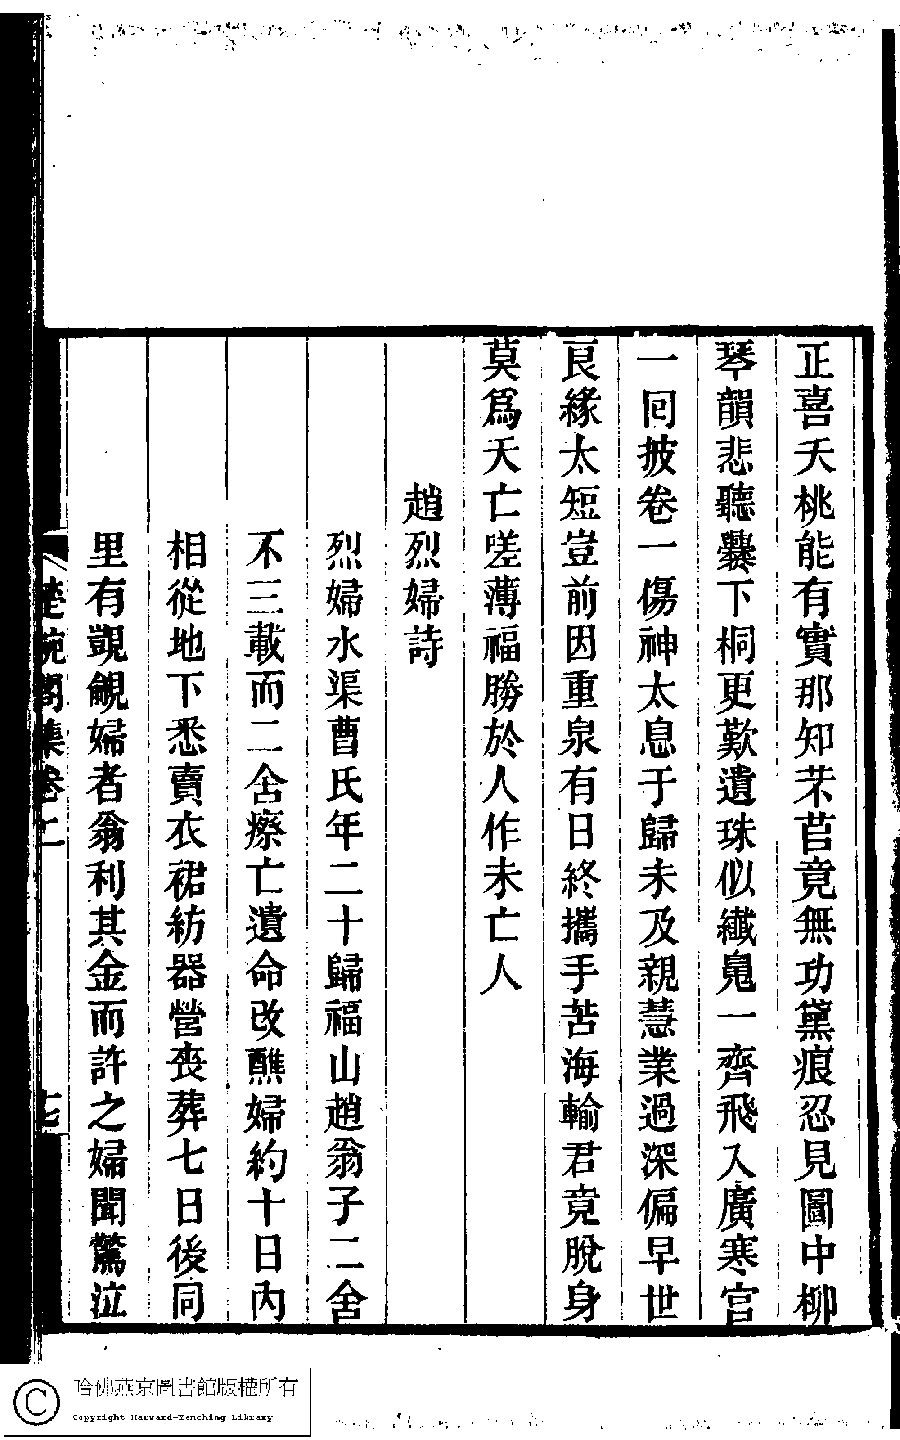 正喜夭桃能有實那知芣苢竟無功黛痕忍見圖中柳
琴韻悲聽爨下桐更歎遺珠似纖鬼一齊飛入廣寒宮
一囘披卷一傷神太息于歸未及親慧業過深偏早世
良緣太短豈前因重泉有日終攜手苦海輸君竟脫身
莫爲天亡嗟薄福勝於人作未亡人
趙烈婦詩
烈婦水渠曹氏年二十歸福山趙翁子二舍
不三載而二舍瘵亡遺命改醮婦約十日內
相從地下悉賣衣裙紡器營喪葬七日後同
里有覬覦婦者翁利其金而許之婦聞驚泣
楚畹閣集卷十一
十七
哈佛燕京圖書館版權所有
Copyright Harvard-Yenching Library